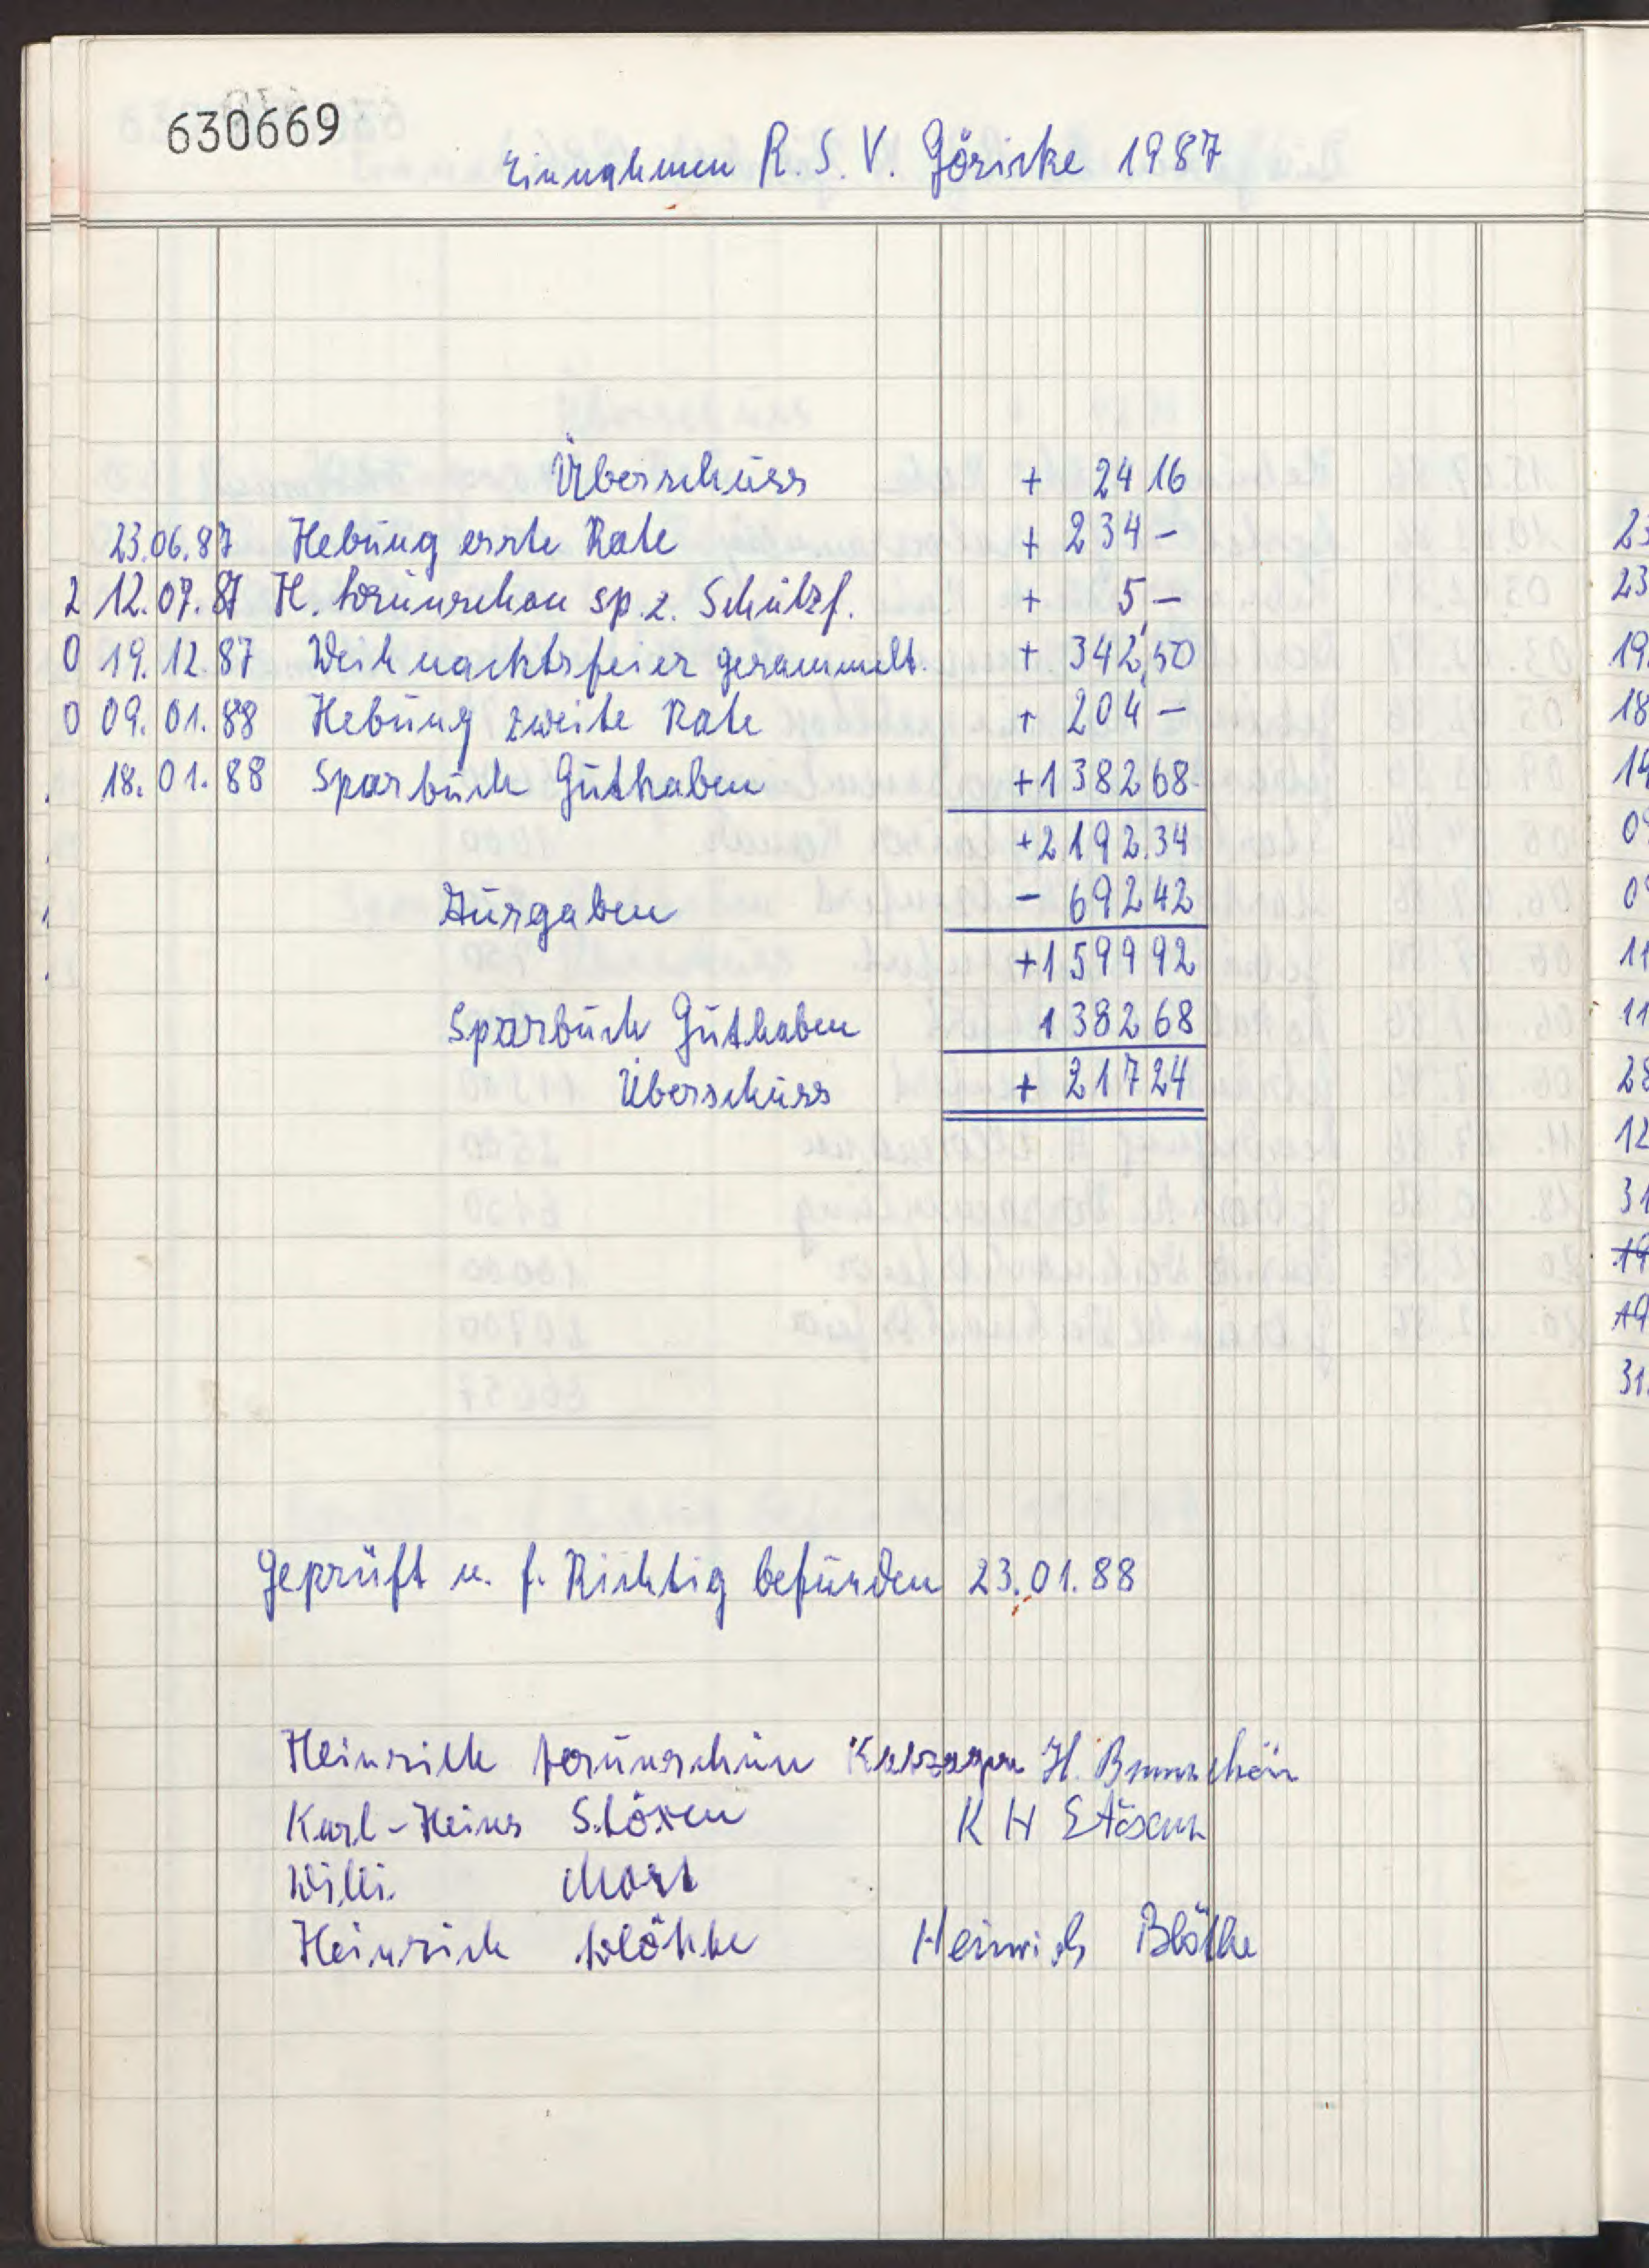 630669
Einnahmen R. S. V. Göricke 1987
Überschuss + 24 16
23.06.87 Hebung erste Rate + 234 –
12.07.87 H. Brunschön sp. z. Schützf. + 5 –
19.12.87 Weihnachtsfeier gesammelt. + 342,50
09.01.88 Hebung zweite Rate + 204 –
18.01.88 Sparbuch Guthaben +1382 68
+2192.34
Ausgaben – 692 42
+1599 92
Sparbuch Guthaben 1382 68
Überschuss + 217 24
Geprüft u. f. Richtig befunden 23.01.88
Heinrich Brunschön H. Brunschön
Karl-Heinz Stöxen K H Stöxen
Willi
Heinrich Blöthe Heinrich Blöthe